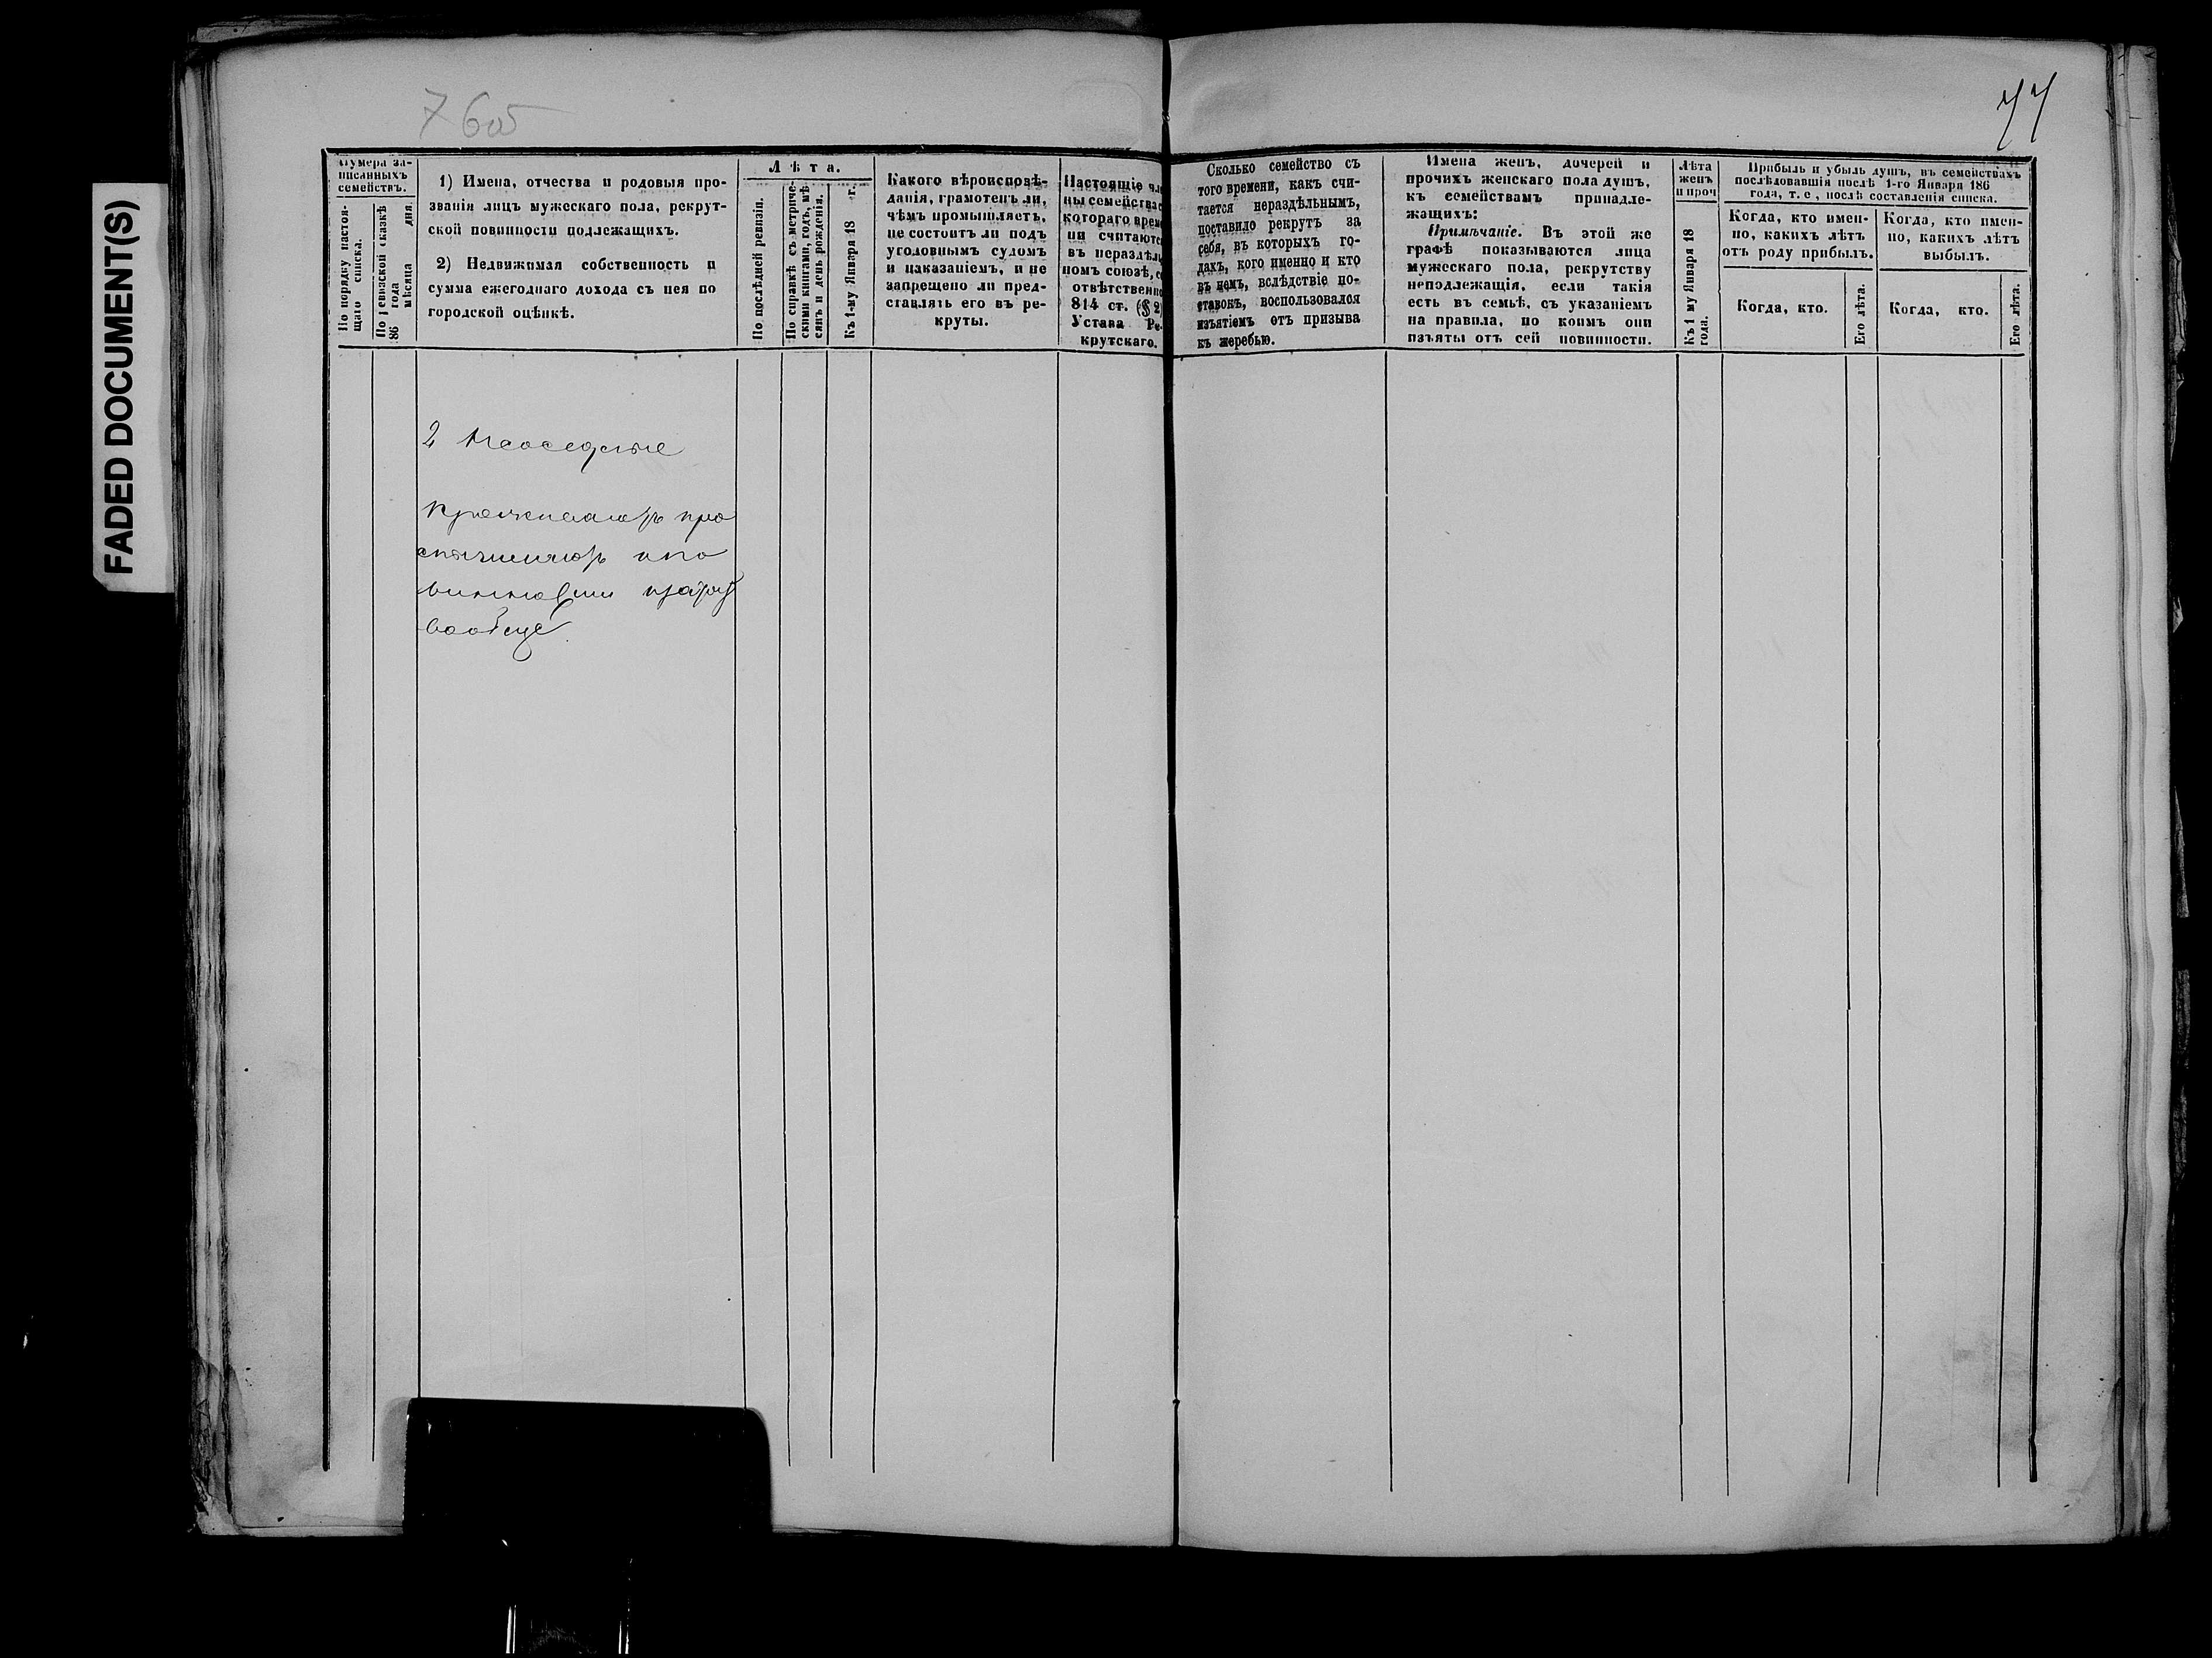 FADED DOCUMENT(S)
76об
77
Нумера за-
писанныхъ
семействъ.
По порядку настоя-
щаго списка.
По ревизской сказкѣ
186 года
мѣсяца дня.
1) Имена, отчества и родовыя про-
званія лицъ мужескаго пола, рекрут-
ской повинности подлежащихъ.
2) Недвижимая собственность и
сумма ежегоднаго дохода съ нея по
городской оцѣнкѣ.
Лѣта.
По послѣдней ревизіи.
По справкѣ съ метриче-
скими книгами, годъ, мѣ-
сяцъ и день рожденія.
Къ 1-му Января 18 г.
Какого вѣроисповѣ-
данія, грамотенъ ли,
чѣмъ промышляетъ,
не состоитъ ли подъ
уголовнымъ судомъ
и наказаніемъ, и не
запрещено ли пред-
ставлять его въ ре-
круты.
Настоящіе чле
ны семейства с
котораго време
ни считаютс
въ нераздѣль
номъ союзѣ, со
отвѣтственно
814 ст. (§ 2)
Устава Ре-
крутскаго.
Сколько семейство съ
того времени, какъ счи-
тается нераздѣльнымъ,
поставило рекрутъ за
себя, въ которыхъ го-
дахъ, кого именно и кто
въ немъ, вслѣдствіе по-
ставокъ, воспользовался
изъятіемъ отъ призыва
къ жеребью.
Имена женъ, дочерей и
прочихъ женскаго пола душъ,
къ семействамъ принадле-
жащихъ:
Примѣчаніе. Въ этой же
графѣ показываются лица
мужескаго пола, рекрутству
неподлежащія, если такія
есть въ семьѣ, съ указаніемъ
на правила, по коимъ они
изъяты отъ сей повинности.
Лѣта
женъ
и проч
Къ 1 му Января 18
года.
Прибыль и убыль душъ, въ семействахъ
послѣдовавшія послѣ 1-го Января 186
года, т. е , послѣ составленія списка.
Когда, кто имен-
но, какихъ лѣтъ
отъ роду прибылъ.
Когда, кто.
Его лѣта.
Когда, кто имен-
но, какихъ лѣтъ
выбылъ.
Когда, кто.
Его лѣта.
2
вообще